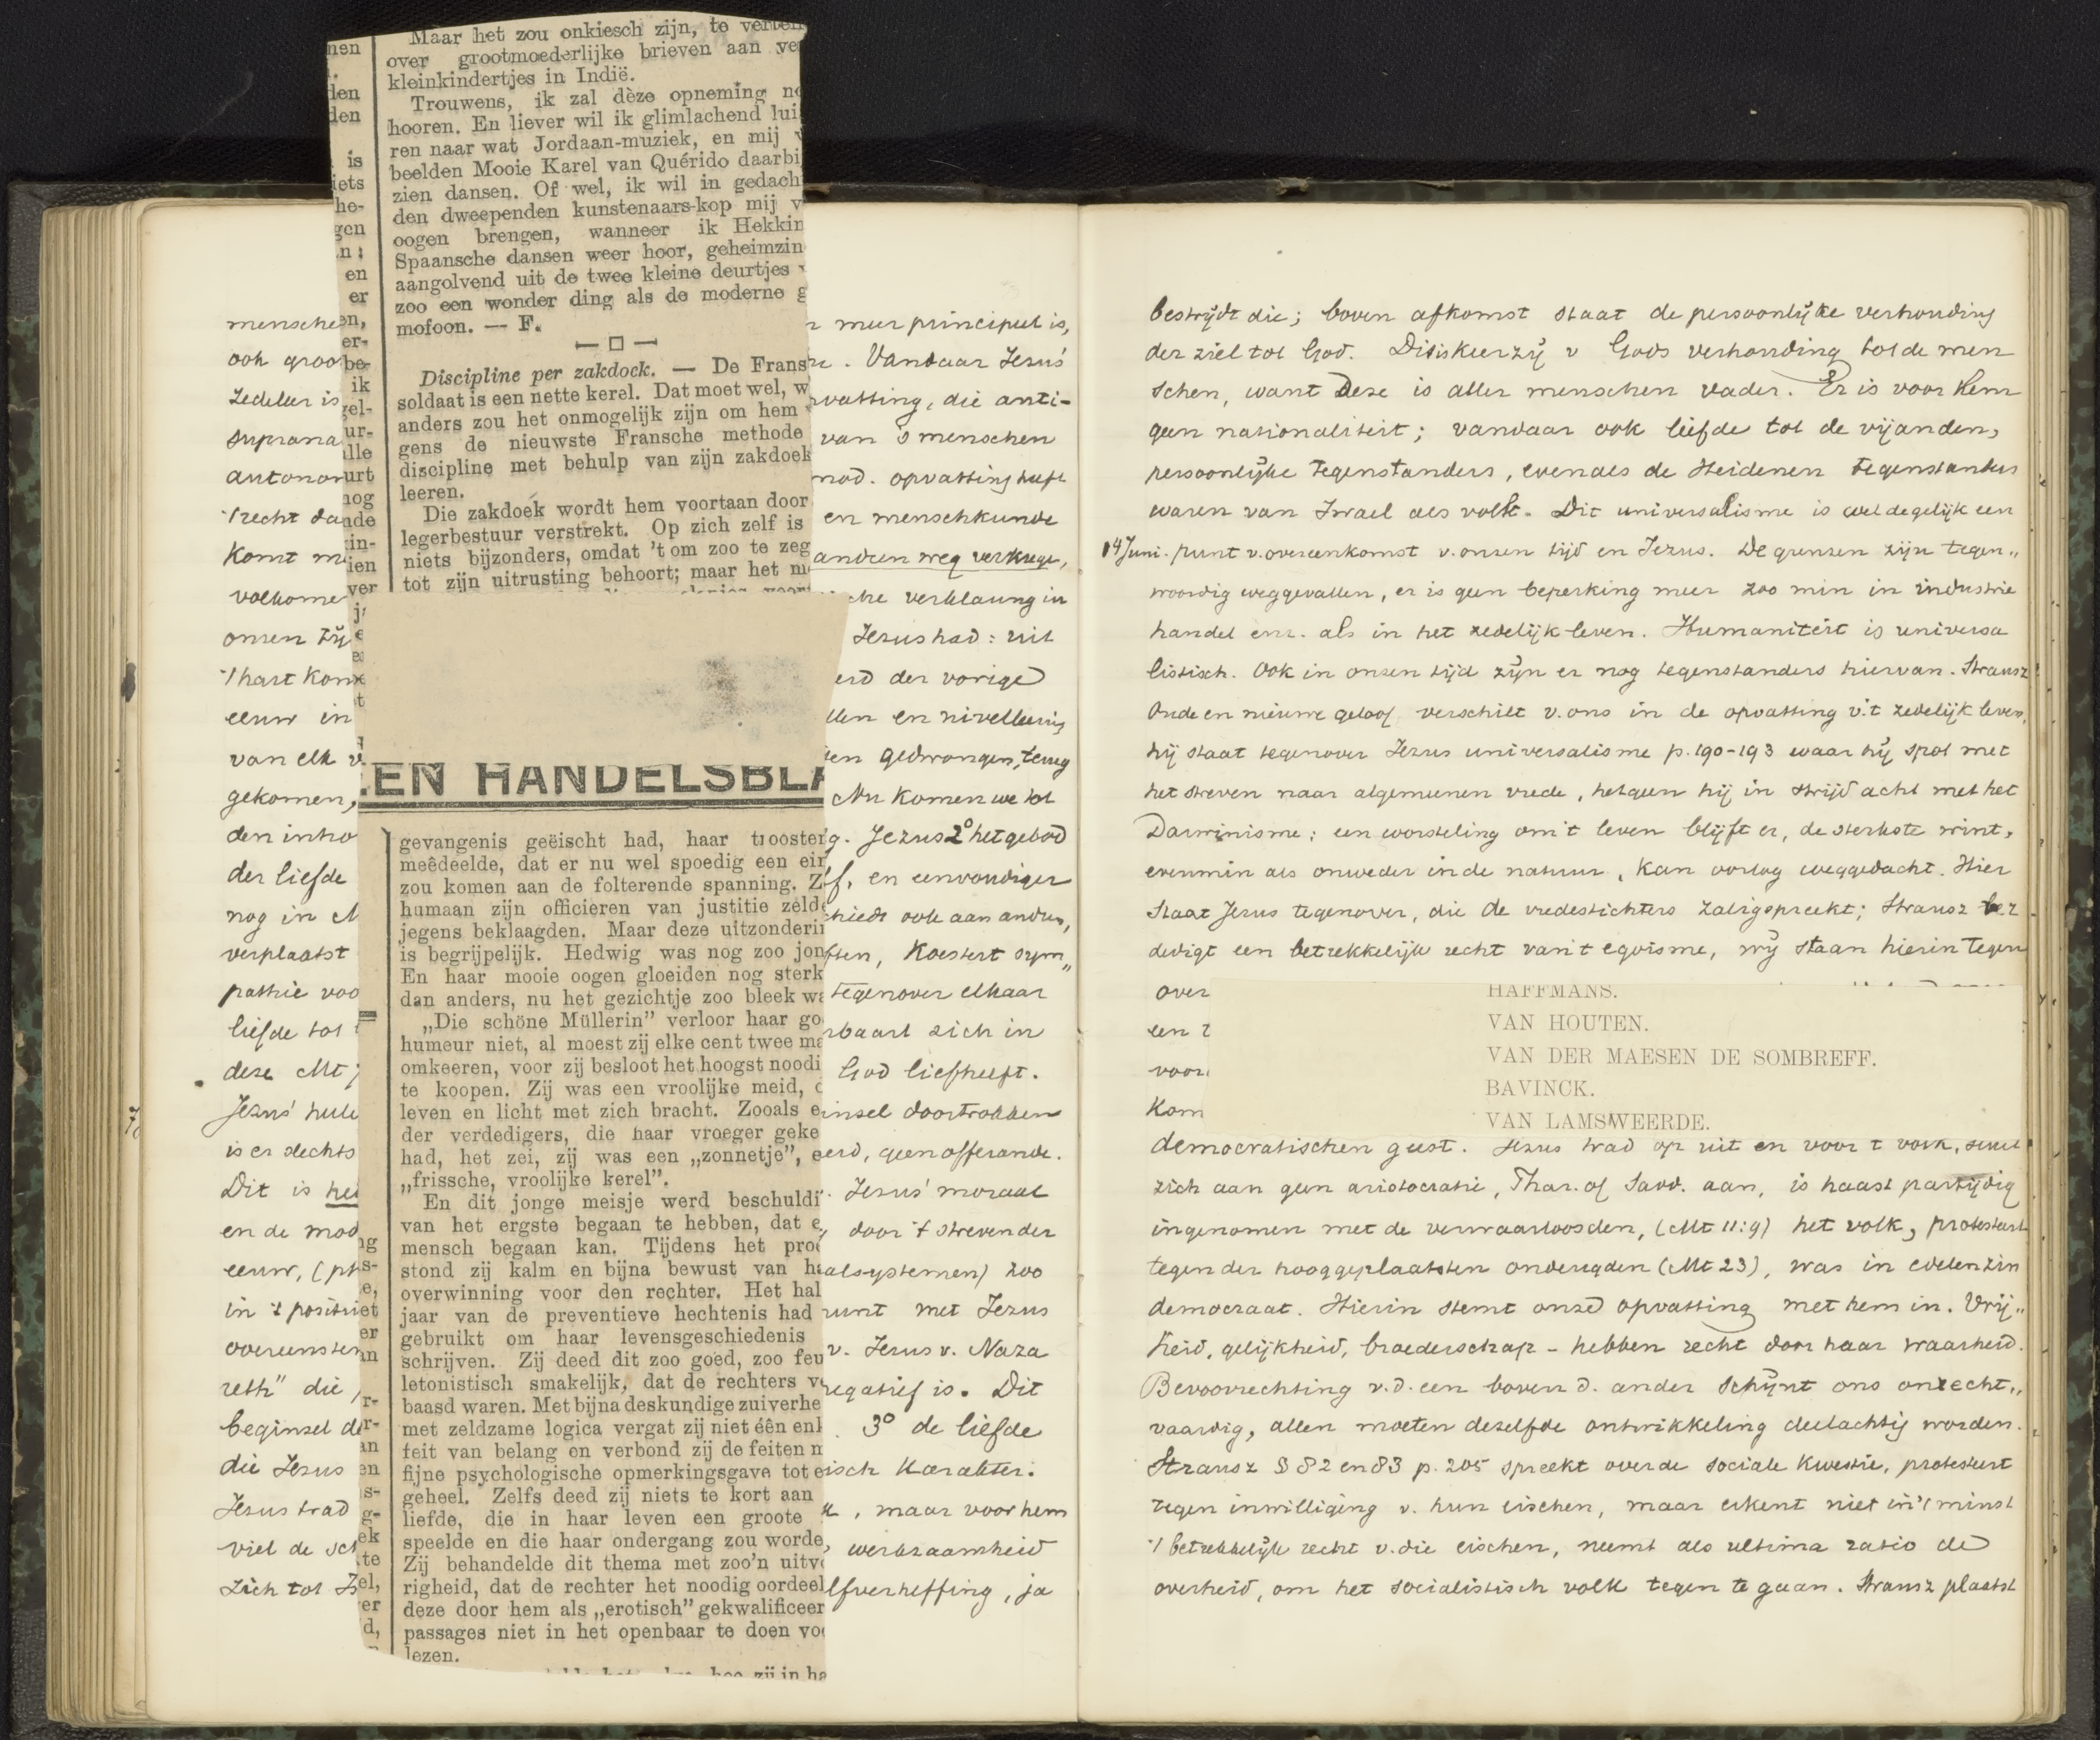 nen
den
den
is
iets
he-
gen
n:
en
er
en,
er-
be-
ik
gel-
ur-
alle
urt
nog
nde
in-
ien
ver
Maar het zou onkiesch zijn, te
over grootmoederlijke brieven aan
kleinkindertjes in Indië.
Trouwens, ik zal dèze opneming
hooren. En liever wil ik glimlachend lui
ren naar wat Jordaan-muziek, en mij
beelden Mooie Karel van Quérido daarbi
zien dansen. Of wel, ik wil in gedach
den dweependen kunstenaars-kop mij v
oogen brengen, wanneer ik Hekkin
Spaansche dansen weer hoor, geheimzin
aangolvend uit de twee kleine deurtjes
zoo een wonder ding als de moderne g
mofoon. — F.
Discipline per zakdock. — De Frans
soldaat is een nette kerel. Dat moet wel, w
anders zou het onmogelijk zijn om hem
gens de nieuwste Fransche methode
discipline met behulp van zijn zakdoek
leeren.
Die zakdoek wordt hem voortaan door
legerbestuur verstrekt. Op zich zelf is
niets bijzonders, omdat 't om zoo te zeg
tot zijn uitrusting behoort; maar het
EN HANDELSBLA
gevangenis geëischt had, haar troosten
meêdeelde, dat er nu wel spoedig een ein
zou komen aan de folterende spanning. Z
humaan zijn officieren van justitie zeld
jegens beklaagden. Maar deze uitzonderin
is begrijpelijk. Hedwig was nog zoo jon
En haar mooie oogen gloeiden nog sterk
dan anders, nu het gezichtje zoo bleek wa
„Die schöne Müllerin” verloor haar go
humeur niet, al moest zij elke cent twee ma
omkeeren, voor zij besloot het hoogst noodi
te koopen. Zij was een vroolijke meid, d
leven en licht met zich bracht. Zooals e
der verdedigers, die haar vroeger geke
had, het zei, zij was een „zonnetje”, e
„frissche, vroolijke kerel”.
En dit jonge meisje werd beschuldi
van het ergste begaan te hebben, dat e
mensch begaan kan. Tijdens het proc
stond zij kalm en bijna bewust van ha
overwinning voor den rechter. Het hal
jaar van de preventieve hechtenis had
gebruikt om haar levensgeschiedenis
schrijven. Zij deed dit zoo goed, zoo feu
letonistisch smakelijk, dat de rechters v
baasd waren. Met bijna deskundige zuiverhe
met zeldzame logica vergat zij niet één enk
feit van belang en verbond zij de feiten m
fijne psychologische opmerkingsgave tot e
geheel. Zelfs deed zij niets te kort aan
liefde, die in haar leven een groote
speelde en die haar ondergang zou worde
Zij behandelde dit thema met zoo'n uitv
righeid, dat de rechter het noodig oordeel
deze door hem als „erotisch” gekwalificeer
passages niet in het openbaar te doen vo
lezen.
zij in ha
mensche
ook groo
Zedeleer is
suprana
autonom
't recht da
komt m
volkome
onzen tij
't hart kom
eeuw in
van elk v
gekomen,
den intro
der liefde
nog in M
verplaatst
pathie voo
liefde tot
deze Mt
Jezus' hule
is er slechts
Dit is
en de mod
eeuw, (ph
in 't positi
overeenstem
reth" die
beginsel de
die Jezus
Jezus trad
viel de sch
zich tot
r meer principeel is,
Vandaar Jezus'
vatting, die anti-
van 's menschen
mod. opvatting heeft
en menschkunde
anderen weg verkrege,
verklaring in
Jezus had: uit
erd der vorige
llen en nivelleering
en gedwongen, terug
Nu komen we tot
g. Jezus 2° het gebod
f, en eenvoudiger
hiedt ook aan andere,
ften, koestert sym„
tegenover elkaar
baart zich in
God liefheeft.
insel doortrokken
erd, geen offerande.
Jezus' moraal
door 't streven der
alsystemen) zoo
punt met Jezus
v. Jezus v. Naza
negatief is. Dit
3° de liefde
isch karakter.
, maar voor hem
werkzaamheid
lfverheffing, ja
bestrijdt die; boven afkomst staat de persoonlijke verhouding
der ziel tot God. Dit is keerzij v Gods verhouding tot de men
schen, want Deze is aller menschen vader. Er is voor hem
geen nationaliteit; vandaar ook liefde tot de vijanden,
persoonlijke tegenstanders, evenals de Heidenen tegenstanders
waren van Israel als volk. Dit universalisme is wel degelijk een
14 Juni. punt v. overeenkomst v. onzen tijd en Jezus. De grenzen zijn tegen„
woordig weggevallen, er is geen beperking meer zoo min in industrie
handel enz. als in het zedelijk leven. Humaniteit is universa
listisch. Ook in onzen tijd zijn er nog tegenstanders hiervan. Strausz
Oude en nieuwe geloof verschilt v. ons in de opvatting v. 't zedelijk leven,
hij staat tegenover Jezus universalisme p. 190-193 waar hij spot met
het streven naar algemeenen vrede, hetgeen hij in strijd acht met het
Darwinisme; een worsteling om 't leven blijft er, de sterkste wint,
evenmin als onweder in de natuur, kan oorlog weggedacht. Hier
staat Jezus tegenover, die de vredestichters zaligspreekt; Strausz ver
dedigt een betrekkelijk recht van 't egoisme, wij staan hierin tegen
over
een
voor
kom
HAFFMANS.
VAN HOUTEN.
VAN DER MAESEN DE SOMBREFF.
BAVINCK.
VAN LAMSWEERDE.
democratischen geest. Jezus trad op uit en voor 't volk, sluit
zich aan geen aristocratie, Phar. of Sadd. aan, is haast partijdig
ingenomen met de verwaarloosden, (Mt 11:9) het volk, protesteert
tegen der hooggeplaatsten ondeugden (Mt 23), was in edelen zin
democraat. Hierin stemt onze opvatting met hem in. Vrij„
heid, gelijkheid, broederschap - hebben recht door haar waarheid.
Bevoorrechting v. d. een boven d. ander schijnt ons onrecht„
vaardig, allen moeten dezelfde ontwikkeling deelachtig worden.
Strausz § 82 en 83 p. 205 spreekt over de sociale kwestie, protesteert
tegen inwilliging v. hun eischen, maar erkent niet in 't minst
't betrekkelijk recht v. die eischen, neemt als ultima ratio de
overheid, om het socialistisch volk tegen te gaan. Strausz plaatst